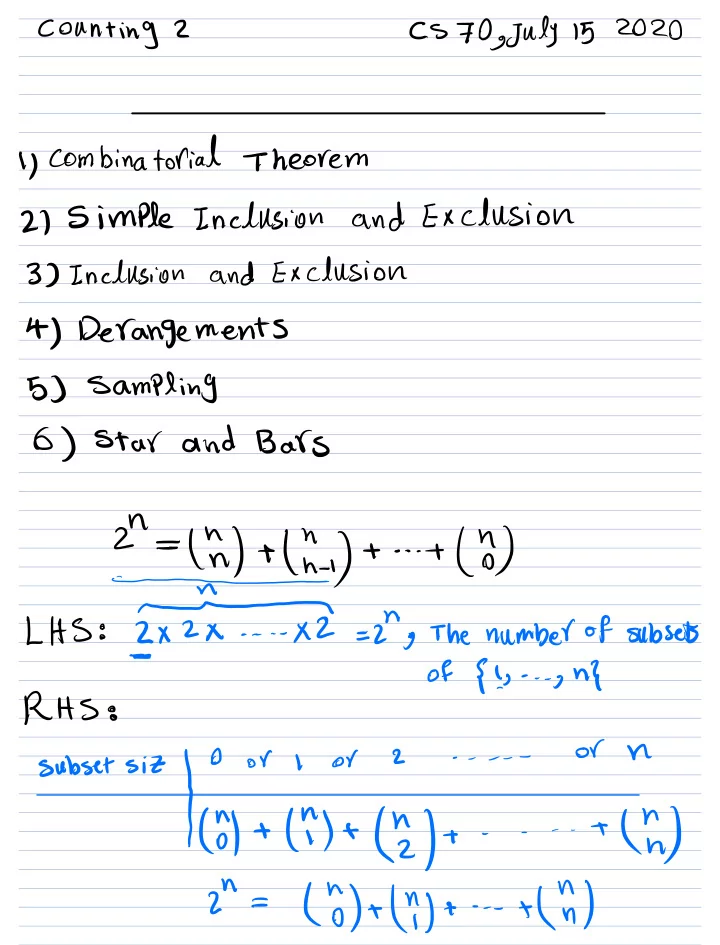 Counting 2 CS 70, July 15 2020
1) Combinatorial Theorem
2) Simple Inclusion and Exclusion
3) Inclusion and Exclusion
4) Derangements
5) Sampling
6) Star and Bars
2^n = (n n) + (n n-1) + ... + (n 0)
n
LHS: 2 x 2 x ---- x 2 = 2^n, The number of subsets
of {1, ---, n}
RHS:
subset siz 0 or 1 or 2 ----- or n
(n 0) + (n 1) + (n 2) + - - - - - + (n n)
2^n = (n 0) + (n 1) + --- + (n n)